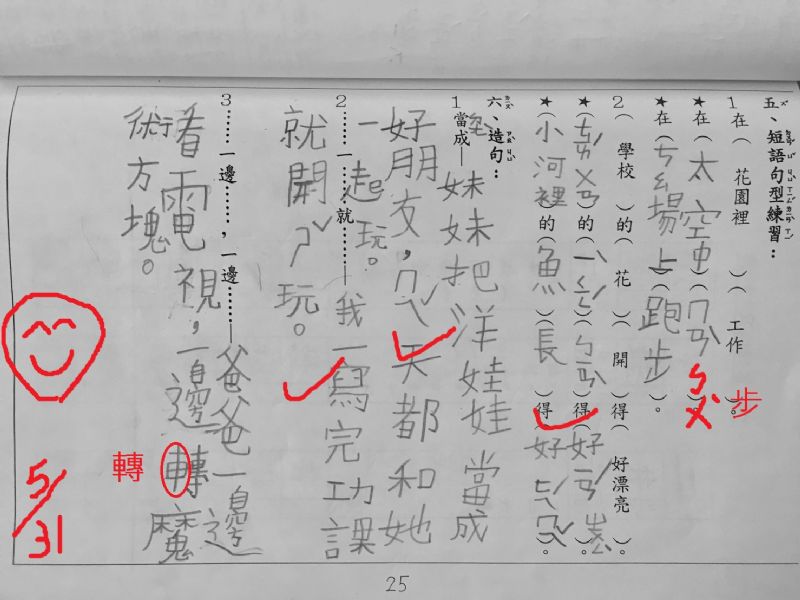 五、短語句型練習：
1在（花園裡）（工作）。
★在（太空中）（ㄇㄢˋㄅㄨˋ）。
步
★在（ㄘㄠ場上）（跑步）。
2（學校）的（花）（開）得（好漂亮）。
★（）的（）（）得（好）。
★（小河裡）的（魚）（長）得（好）。
六、造句：
1當成—妹妹把洋娃娃當成
好朋友，ㄇㄟˇ天都和她
一起玩。
2……一……就……—我一寫完功課
就開ㄕˇ玩。
3……一邊……，一邊……—爸爸一邊
看電視，一邊轉魔
術方塊。
轉
5/31
25